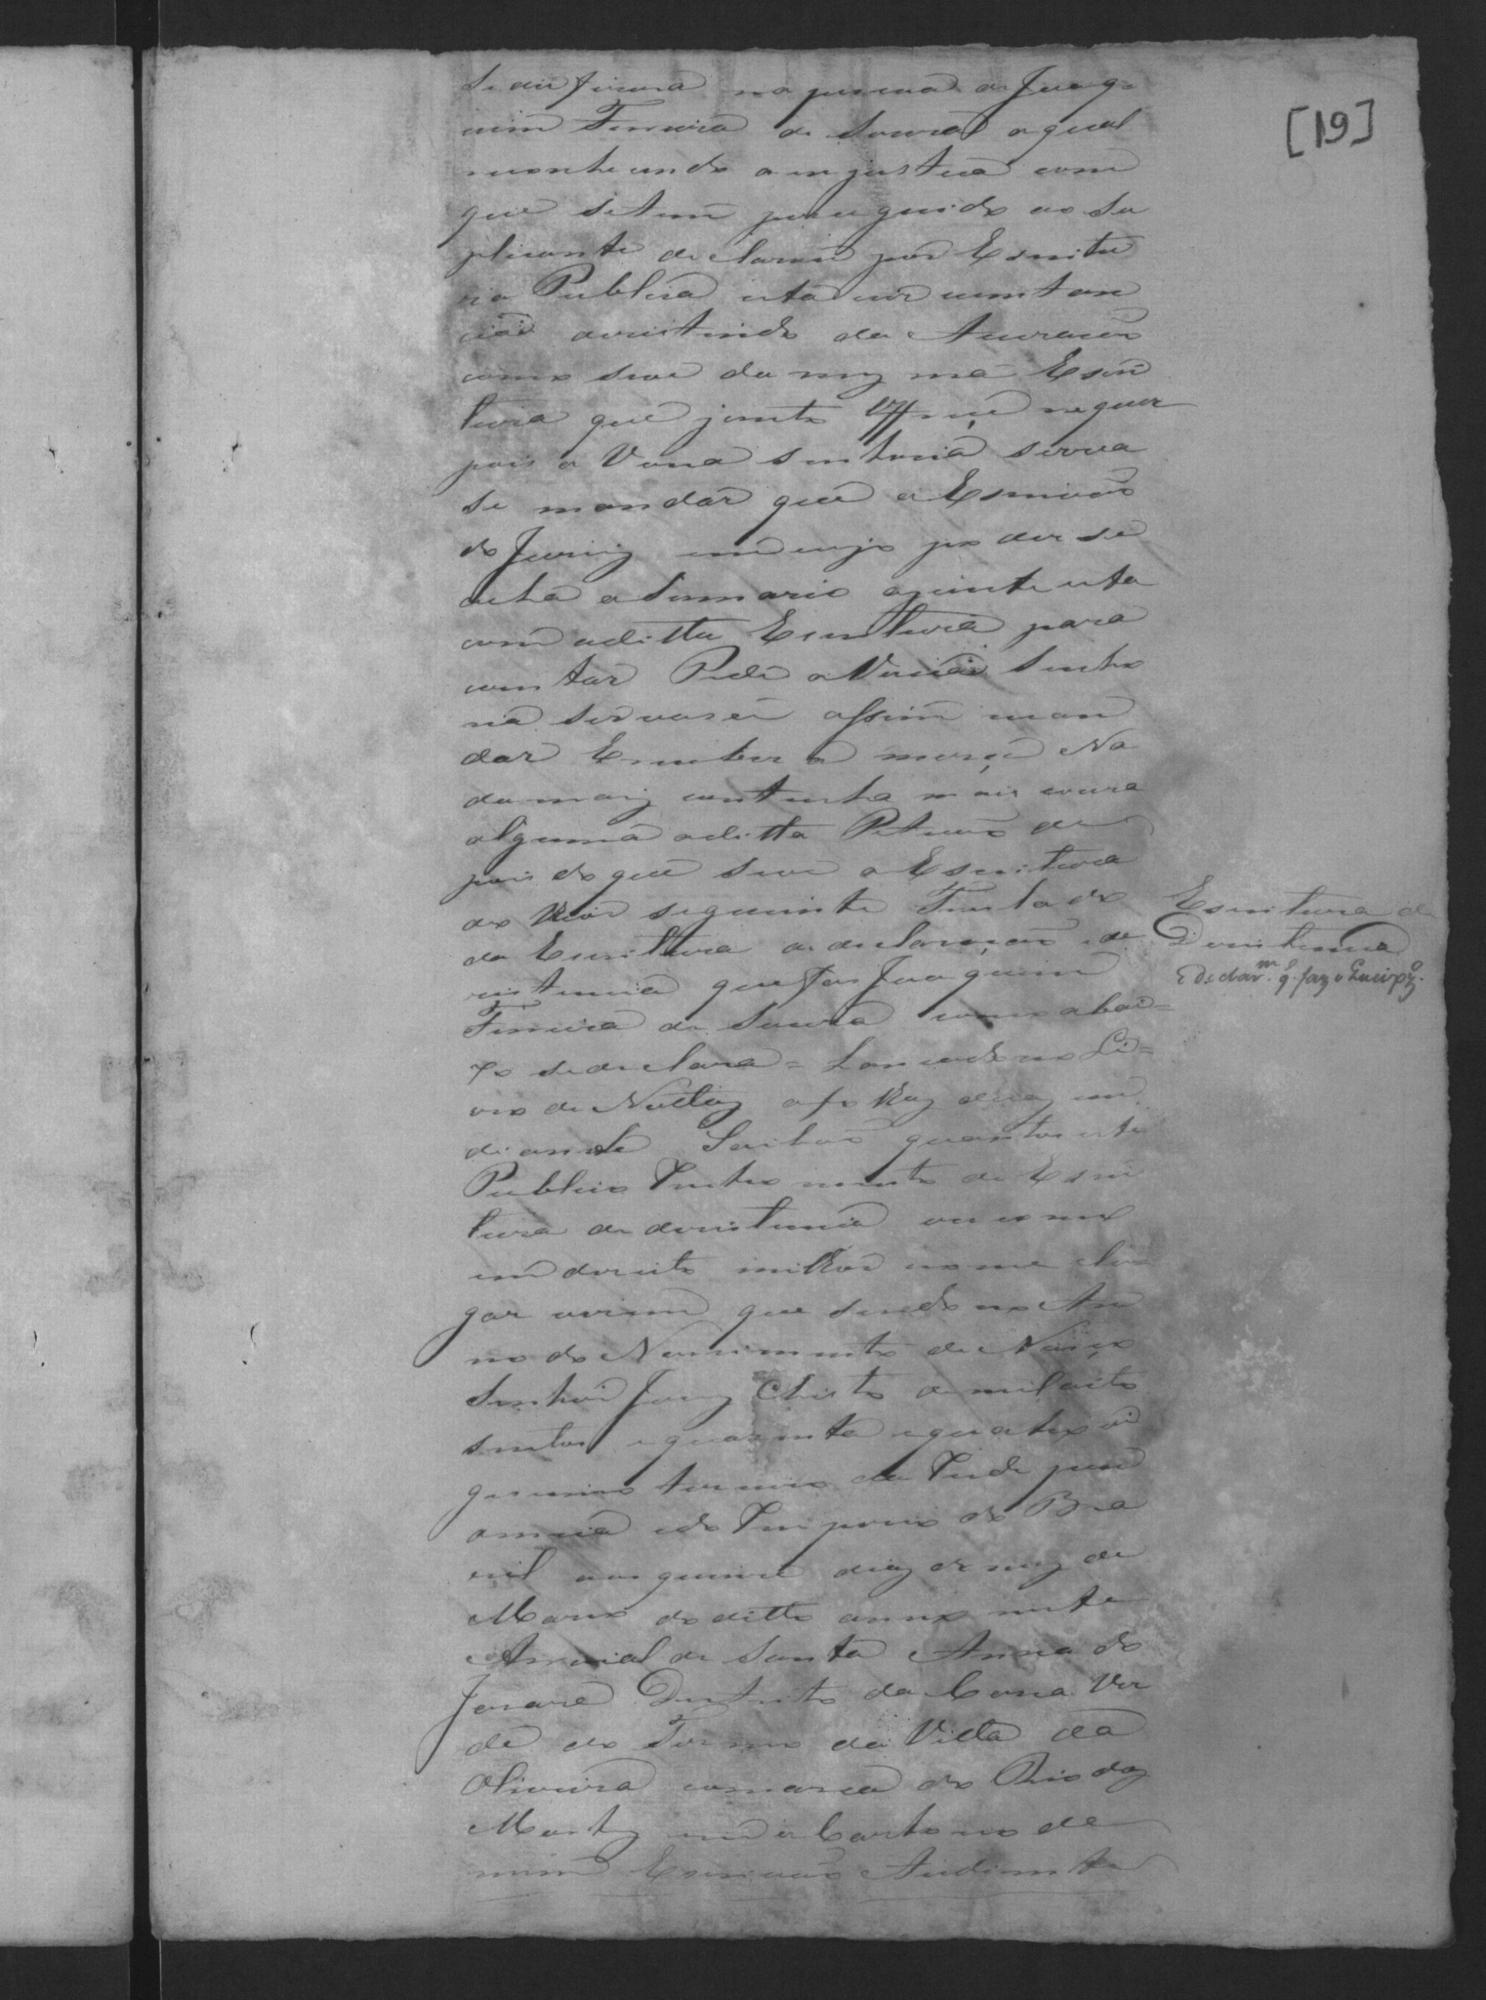 [19]
na pessoa de Joaq=
uim Ferreira de Souza o qual
conhecendo a injustiça com
que se tem perseguido ao Su
plicante declarou por Escritu
ra Publica esta circunstan
cia desistindo da Acuração
como se ve da mesma Escri
tura que junto requer
pois a Vossa Senhoria sirva
se mandar que o Escrivão
do Juriz em cujo poder se
acha o Sumario ajunte esta
com a ditta Escritura para
constar Pede a Vossa Senho
ria sirvasse assim man
dar E receberá mercê Na
da mais continha mais couza
alguma a ditta Petição de
pois do que se ve a Escritura
do theor seguinte Treslado
da Escritura de declaração e de
zistencia que faz Joaquim
Ferreira de Souza como abai=
xo se declara = Lançado no Li=
vro de Nottas a folhas dez em
diante Saibão quantos este
Publico Instromento de Escri
tura de dezistencia ou como
em direito milhor nome e lu
gar virem que sendo no An
no do Nascimento de Nosso
Senhor Jezus Christo de mil oito
centos e quarenta e quatro vi
gessimo terceiro da Inde pend
encia e do Imperio do Bra
zil aos quinze dias do mes de
Março do ditto anno neste
Arraial de Santa Anna do
Jacaré Destrito da Cana Ver
de do Termo da Villa da
Oliveira comarca do Rio das
Mortes em o Cartorio de
mim Escrivão Adiante
Escritura de
Dezistencia
e declar.m q. faz o